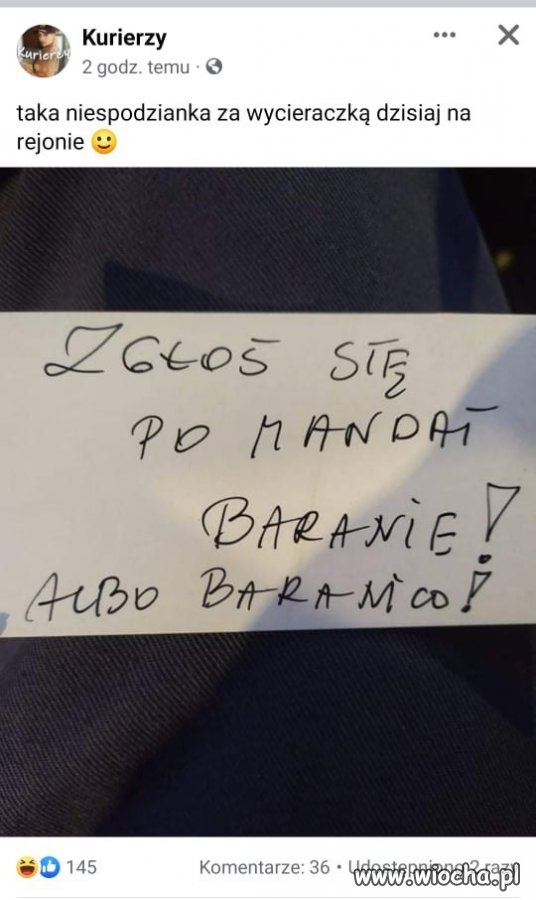 Kurierzy
Kurierzy
2 godz. temu ·
taka niespodzianka za wycieraczką dzisiaj na
rejonie
ZGŁOŚ SIĘ
PO MANDAT
BARANIE!
ALBO BARANICO!
145
Komentarze: 36 • Udostępniono 2 razy
www.wiocha.pl